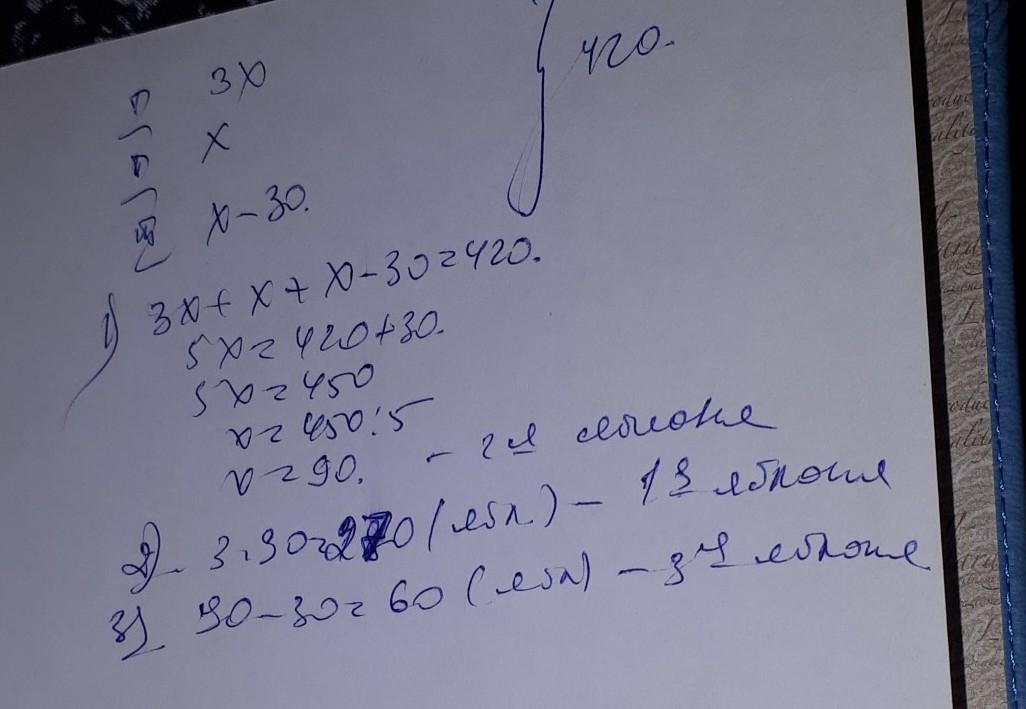 3x
420.
x
x - 30.
1) 3x + x + x - 30 = 420.
5x = 420 + 30.
5x = 450
x = 450 : 5
x = 90. - 2я яблоня
2) 3 . 90 = 270 (ябл.) - 1я яблоня
3) 90 - 30 = 60 (ябл) - 3я яблоня